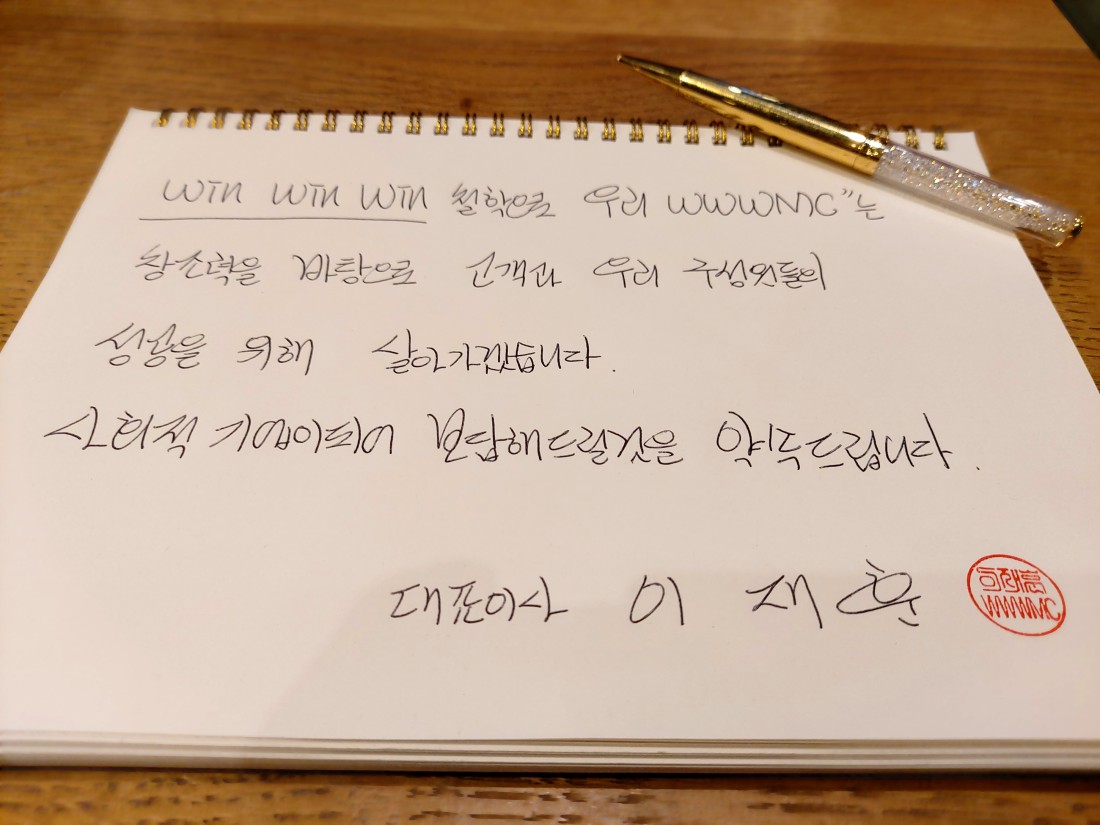 win win win 철학으로 우리 WWWMC"는
창조력을 바탕으로 고객과 우리 구성원들의
성공을 위해 살아가겠습니다.
사회적 기업이되어 보답해드릴것을 약속드립니다.
대표이사 이 재 훈
WWWMC